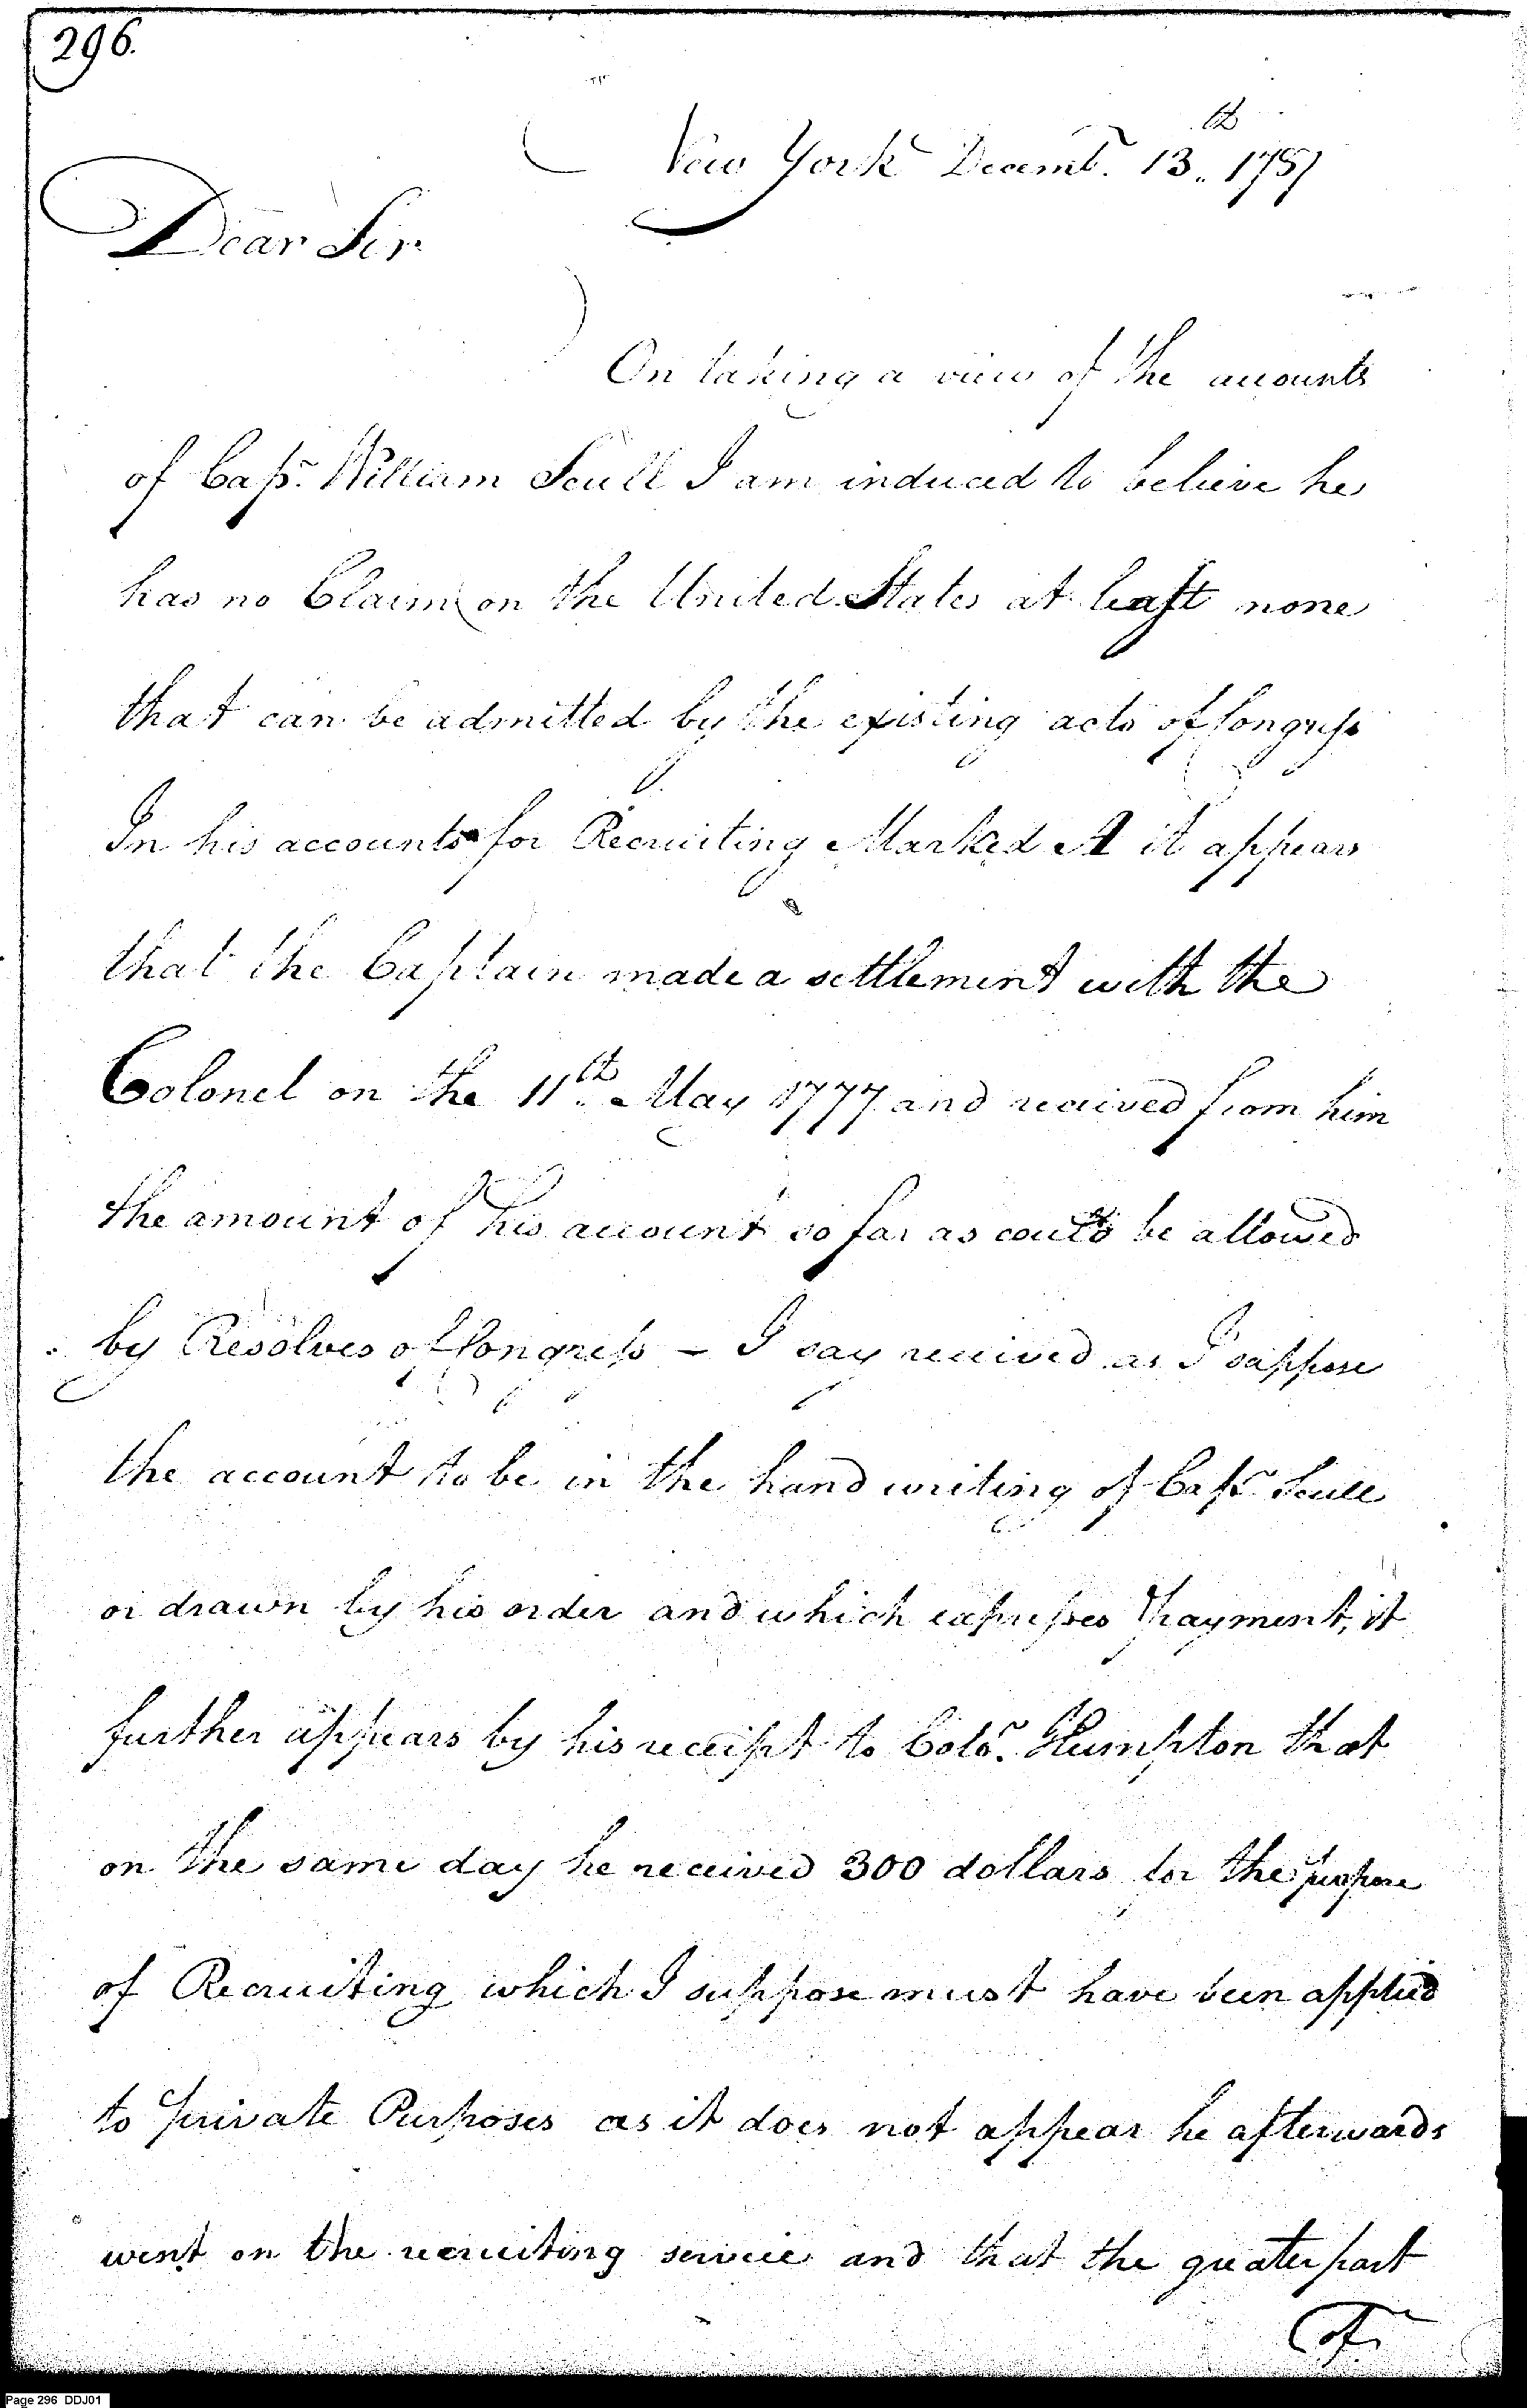 296.
New York Decemb.r 13.th 1787
Dear Sir
On taking a view of the accounts
of Capt. William Scull I am induced to believe he
has no Claim on the United States at least none
that can be admitted by the existing acts of Congress
In his accounts for Recruiting Marked A it appears
that the Captain made a settlement with the
Colonel on the 11.th May 1777 and received from him
the amount of his account so far as could be allowed
by Resolves of Congress – I say received as I suppose
the account to be in the hand writing of Capt. Scull
or drawn by his order and which expresses Payment, it
further appears by his receipt to Colo. Humpton that
on the same day he received 300 dollars for the purpose
of Recruiting which I suppose must have been applied
to private Purposes as it does not appear he afterwards
went on the recruiting service and that the greater part
of
Page 296 DDJ01